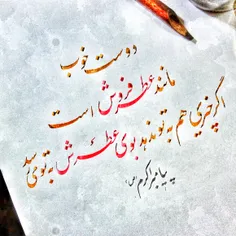 دوست خوب
مانند عطر فروش است
اگر چیزی هم به تو ندهد بوی عطرش به تو می رسد
پیامبر اکرم (ص)